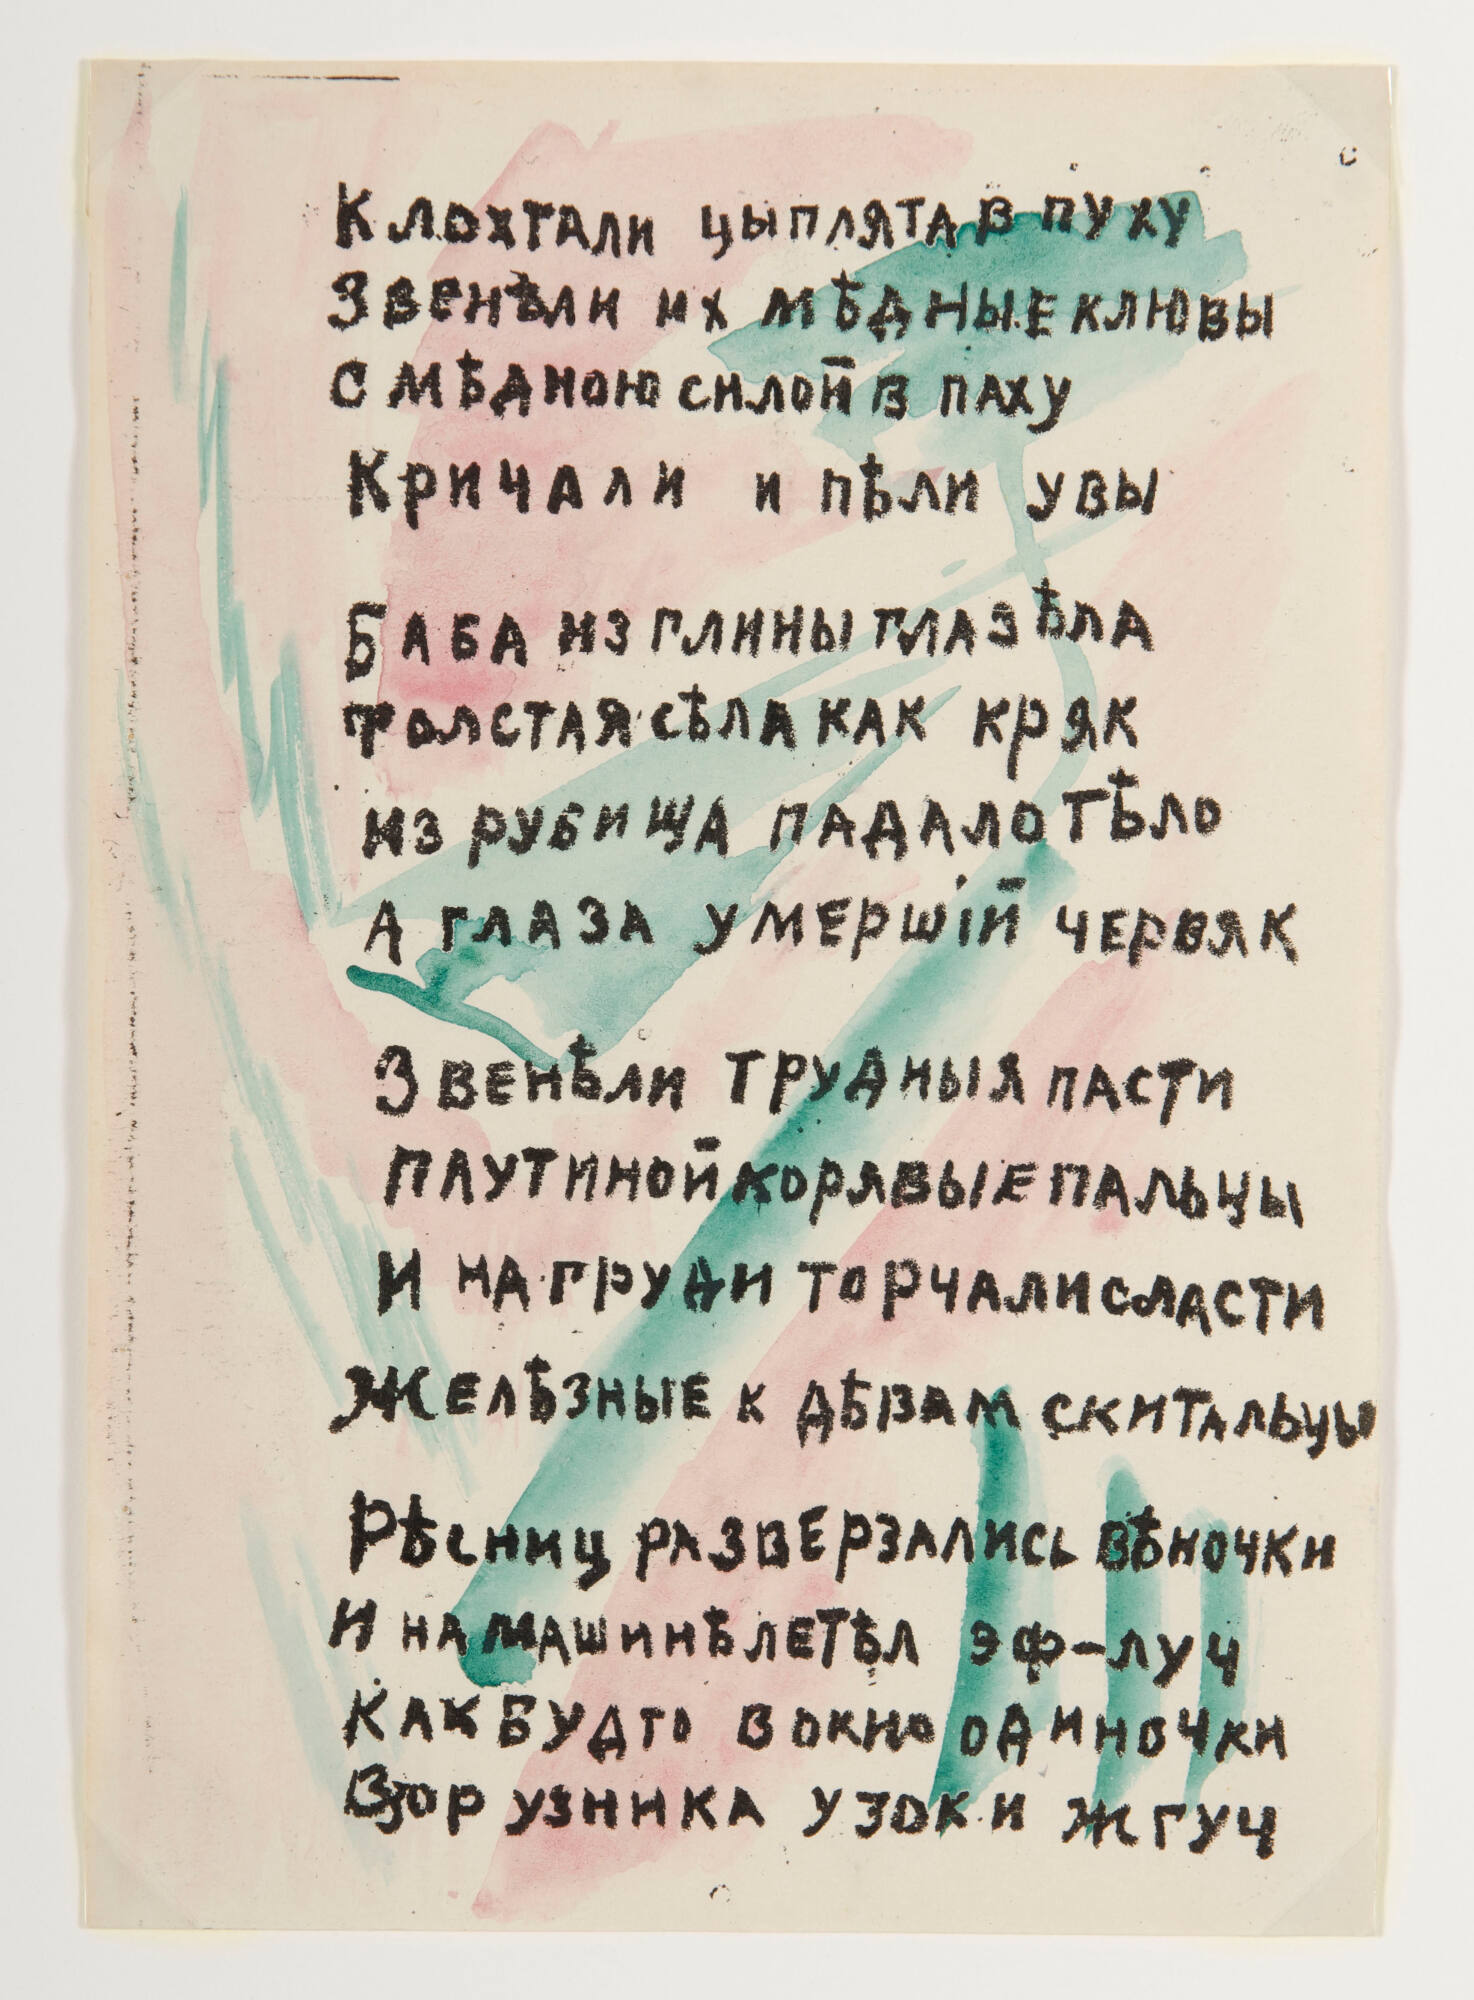 Клохтали цыплята в пуху
Звенѣли их мѣдные клювы
С мѣдною силой в паху
Кричали и пѣли увы
Баба из глины глазѣла
толстая сѣла как кряк
из рубища падало тѣло
А глаза умершій червяк
Звенѣли трудныя пасти
паутиной корявые пальцы
И на груди торчали сласти
Желѣзные к дѣвам скитальцы
Рѣсниц разверзались вѣночки
И на машинѣ летѣл эф-луч
Как будто в окно одиночки
Взор узника узок и жгуч